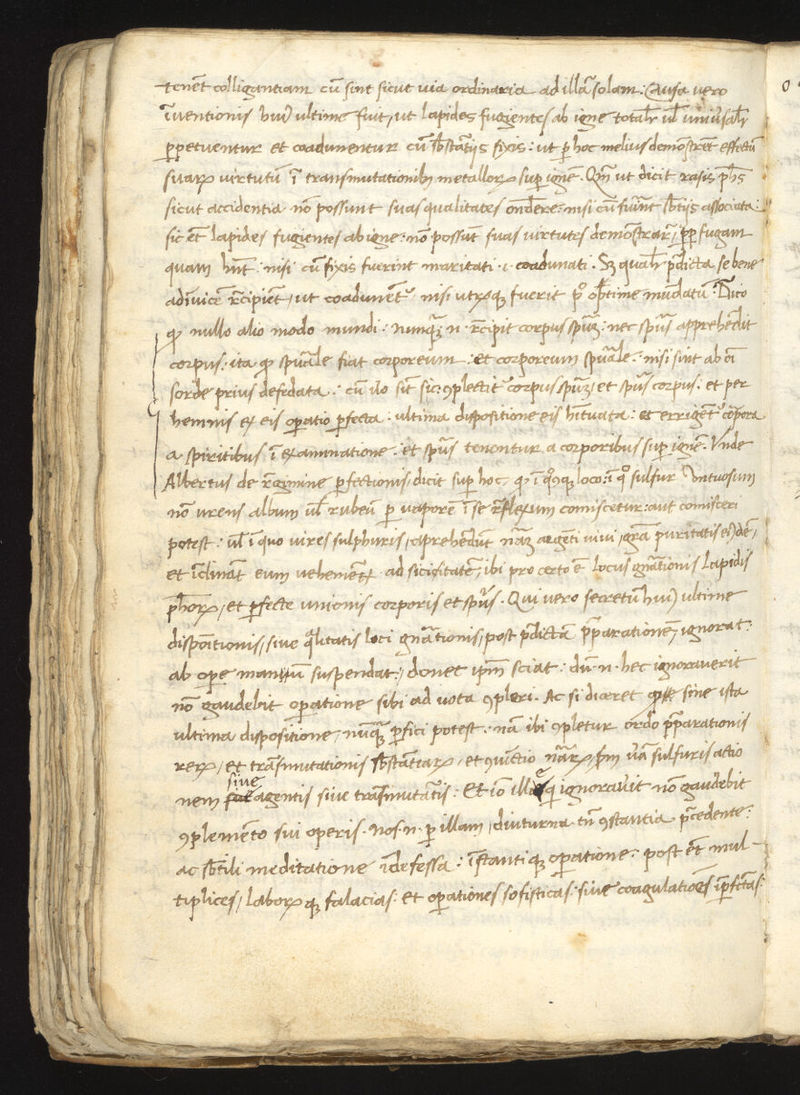 tenēt colligantiam cū sint sicut uia ordinaria ad illā solam : Causa uero
īuentionis huiꝰ ultime fuit, ut lapides fugientes ab igne totalr̄ ul̄ uniūsalr̄
ꝑpetuentur et coadunentur cū sb̄statijs fixis : ut ꝑ hoc melius demonstrēt effectū
suarꝝ virtutū ī transmutationibꝰ metallorꝝ suꝑ ignē . Qm̄ ut dicit rasis ph̄s
sicut accidentia nō possunt suas qualitates ondere : nisi cū fuerint sb̄tijs associata :
sic et̄ lapides fugientes ab igne : nō possūt suas uirtutes demonstrar̄, ꝓꝑ fugam
quam hn̄t : nisi cū fixis fuerint maritati .i. coadunati . Sꝫ qualr̄ p̄dicta se bene
adīuicē rēcipiēt, ut coadunēt᷑ nisi utrꝝqꝫ fuerit p̄º optime mūdatū . Dico
qꝫ nullo alio modo mundi : nunqꝫ .n. rēcipit corpus spūꝫ : nec spūs apprehēdit
corpus : ita qꝫ spūale fiat corporeum : et corporeum spūale : nisi sint ab oī
sorde prius defedata : cū uº sīt sic : ꝯplectit᷑ corpus spūꝫ, et spūs corpus : et per
hemnis ex eis oꝑatio ꝑfecta : ultima dispositione eis hītuata : et errigent᷑ corpora
a spiritibus ī examinatione : et spūs tenentur a corporibus suꝑ ignē . Vnde
Albertus de rēgimine ꝑfectionis dicit suꝑ hoc, qꝫ ī qºcūqꝫ loco : ī qº sulfur Vntuosum
nō urens album ul̄ rubeū ꝑ uaporē ī se rēflexum comiscetur : aut comisceri
potest : ul̄ ī quo uires sulphuris, aprehēdūt nāꝫ argēti uiui, grā puritatis eiꝰdē,
et īclināt eum uehemēter ad sicitatē, ibi pro certo ē locus gnātionis lapidis
ph̄orꝝ, et ꝑfecte unionis corporis et spūs . Qui uero secretū huiꝰ ultime
dispōitionis, siue qlitatis loci gnātionis, post p̄dictā p̄parationē, ignorat :
ab oꝑe manū suspendat, donec ipm̄ sciat : dū .n. hec ignorauerit
nō gaudebit oꝑatione sibi ad uota ꝯpleri . Ac si diceret qꝫ sine ista
ultima dispositione, nūqꝫ ꝑfici potest : nā ibi ꝯpletur ordo p̄parationis
rerꝝ, et trāsmutationis sb̄stātiarꝝ, et ꝯuīctio nārꝝ sm̄ uā sulfuris actio
siue
nem agentis siue trāsmutātis : Et iō ille qi ignorauit nō gaudebit
ꝯplemēto sui operis . nos .n. ꝑ illam, diuturna tn̄ ꝯstantia p̄cedente :
ac sb̄tili meditatione īdefessa : īstantiqꝫ oꝑatione : post et̄ mul-
tiplices, laborꝝqꝫ falacias : et oꝑationes sofisticas : siue coagulatiōes īꝑfectas :